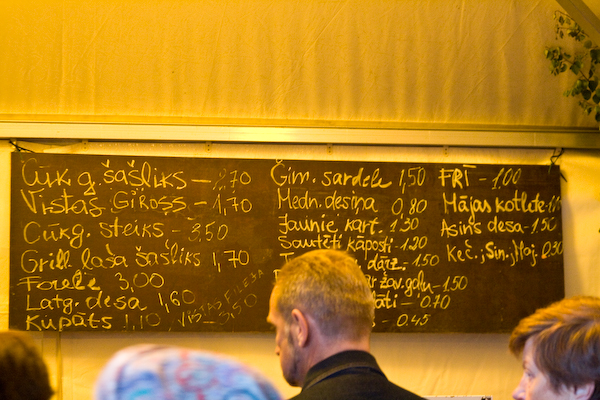 Cūk g. šašliks – 2,70
Vistas Giross – 1,70
Cūkg. steiks – 3,50
Grill. laša šašliks 1,70
Forele 3,00
Latg. desa 1,60
Kupāts 1,10
VISTAS FILEJA 3,50
Ģim. sardele 1,50
Medn. desiņa 0,80
Jaunie kart. 1.30
Sautēti kāposti 1.20
dārz. 1.50
ar žav. gaļu – 1.50
– 0.70
– 0.45
FRĪ – 1.00
Mājas kotlete
Asins desa – 1.50
Keč., Sin., Maj. 0.30